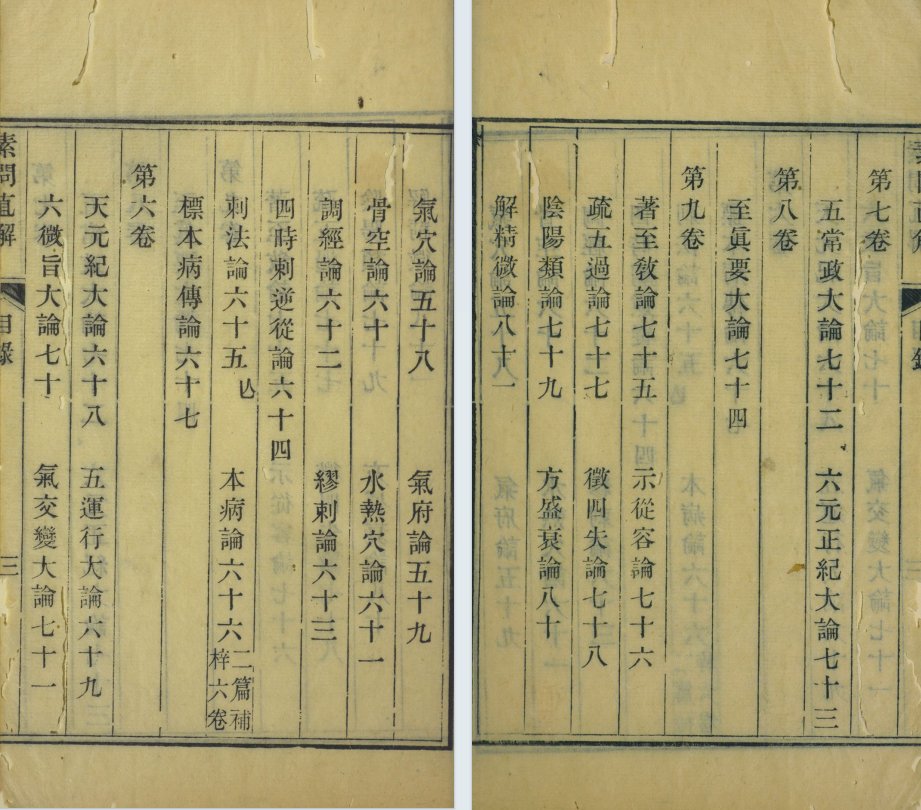 氣穴論五十八　氣府論五十九
骨空論六十　水熱穴論六十一
調經論六十二　繆刺論六十三
四時刺逆從論六十四
刺法論六十五亾　本病論六十六二篇補梓六卷
標本病傳論六十七
第六卷
天元紀大論六十八　五運行大論六十九
六微旨大論七十　氣交變大論七十一
素問直解　目錄　三
第七卷
五常政大論七十二　六元正紀大論七十三
第八卷
至眞要大論七十四
第九卷
著至敎論七十五　示從容論七十六
疏五過論七十七　徵四失論七十八
陰陽類論七十九　方盛衰論八十
解精微論八十一